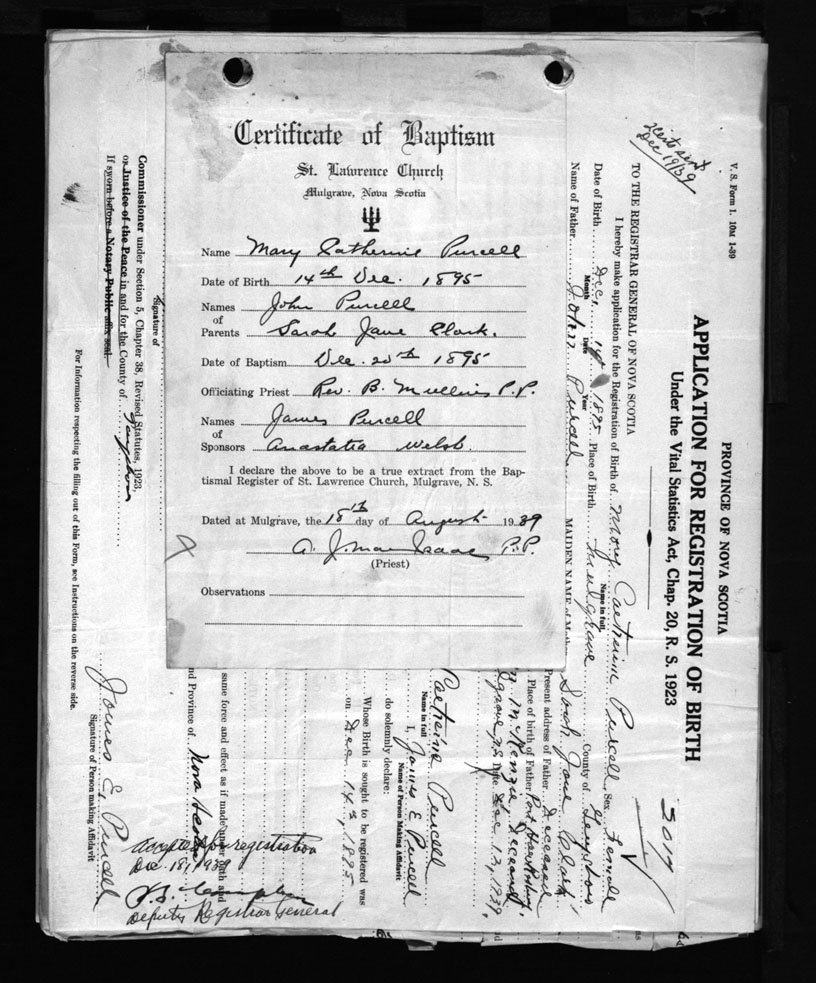 Certificate of Baptism
St. Lawrence Church
Mulgrave, Nova Scotia
Name Mary Catherine Purcell
Date of Birth 14th Dec. 1895
Names of Parents John Purcell
Sarah Jane Clark.
Date of Baptism Dec. 20th 1895
Officiating Priest Rev. B. Mullins P.P.
Names of Sponsors James Purcell
Anastatia Welsh.
I declare the above to be a true extract from the Bap-
tismal Register of St. Lawrence Church, Mulgrave, N. S.
Dated at Mulgrave, the 18th day of August 1939
A. J. MacIsaac P.P.
(Priest)
Observations
V. S. Form 1. 10M 1-39
PROVINCE OF NOVA SCOTIA
APPLICATION FOR REGISTRATION OF BIRTH
Under the Vital Statistics Act, Chap. 20, R. S. 1923
Dec 19/39
TO THE REGISTRAR GENERAL OF NOVA SCOTIA
I hereby make application for the Registration of Birth of Mary Catherine Purcell Sex Female
Name in full
Date of Birth Dec. 14 1895 Place of Birth Mulgrave County of Guysboro
Month Date Year
Name of Father John Purcell MAIDEN NAME of Mother Sarah Jane Clark
Present address of Father Deceased
Place of birth of Father Port Hawkesbury,
McKenzie, Deceased
Date Dec. 13, 1939
Catherine Purcell
Name in full
I, James E Purcell
Name of Person Making Affidavit
do solemnly declare:
Whose Birth is sought to be registered was
on Dec. 14th, 1895
same force and effect as if made under oath and
nd Province of Nova Scotia
Accepted for registration
Dec. 18, 1939
Deputy Registrar General
James E. Purcell
Signature of Person making Affidavit
Signature of
Commissioner under Section 5, Chapter 38, Revised Statutes, 1923,
or Justice of the Peace in and for the County of Guysboro
If sworn before a Notary Public affix seal.
For Information respecting the filling out of this Form, see Instructions on the reverse side.